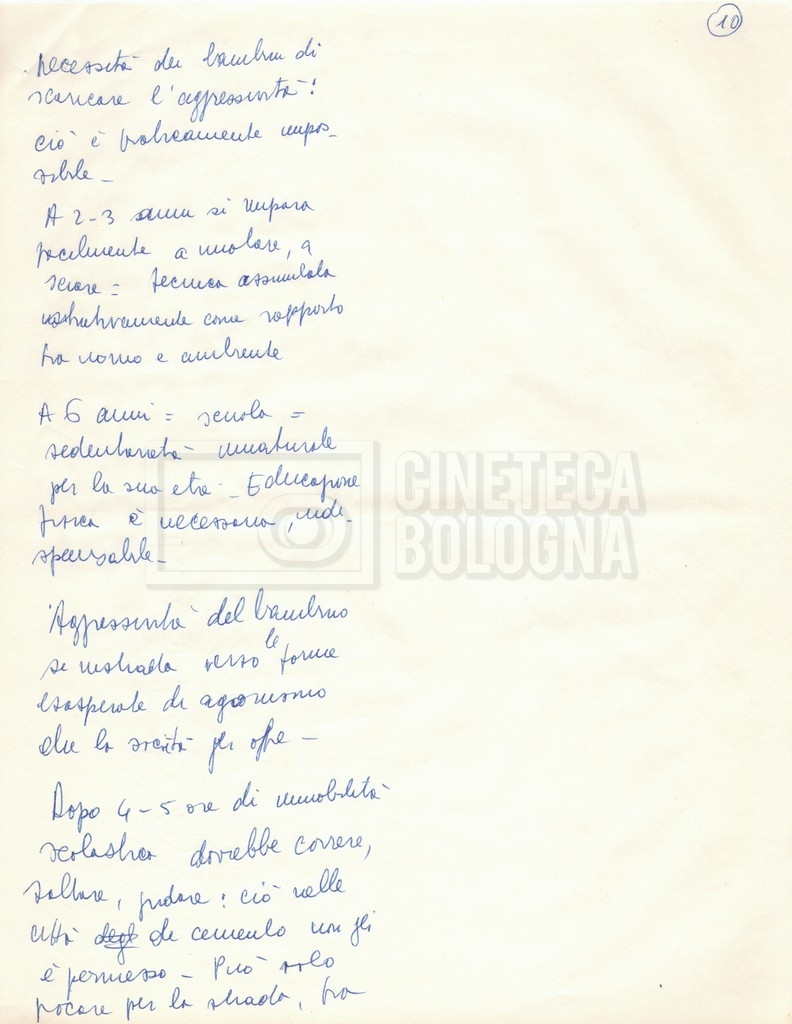 10
necessità dei bambini di
scaricare l'aggressività:
ciò è praticamente impos-
sibile -
A 2-3 anni si impara
facilmente a nuotare, a
sciare = tecnica assimilata
istintivamente come rapporto
tra uomo e ambiente
A 6 anni = scuola =
sedentarietà innaturale
per la sua età - Educazione
fisica è necessaria, indi-
spensabile -
Aggressività del bambino
si instrada verso le forme
esasperate di agonismo
che la società gli offre -
Dopo 4-5 ore di immobilità
scolastica dovrebbe correre,
saltare, gridare: ciò nelle
città degl di cemento non gli
è permesso - Può solo
giocare per la strada, tra
CINETECA
BOLOGNA